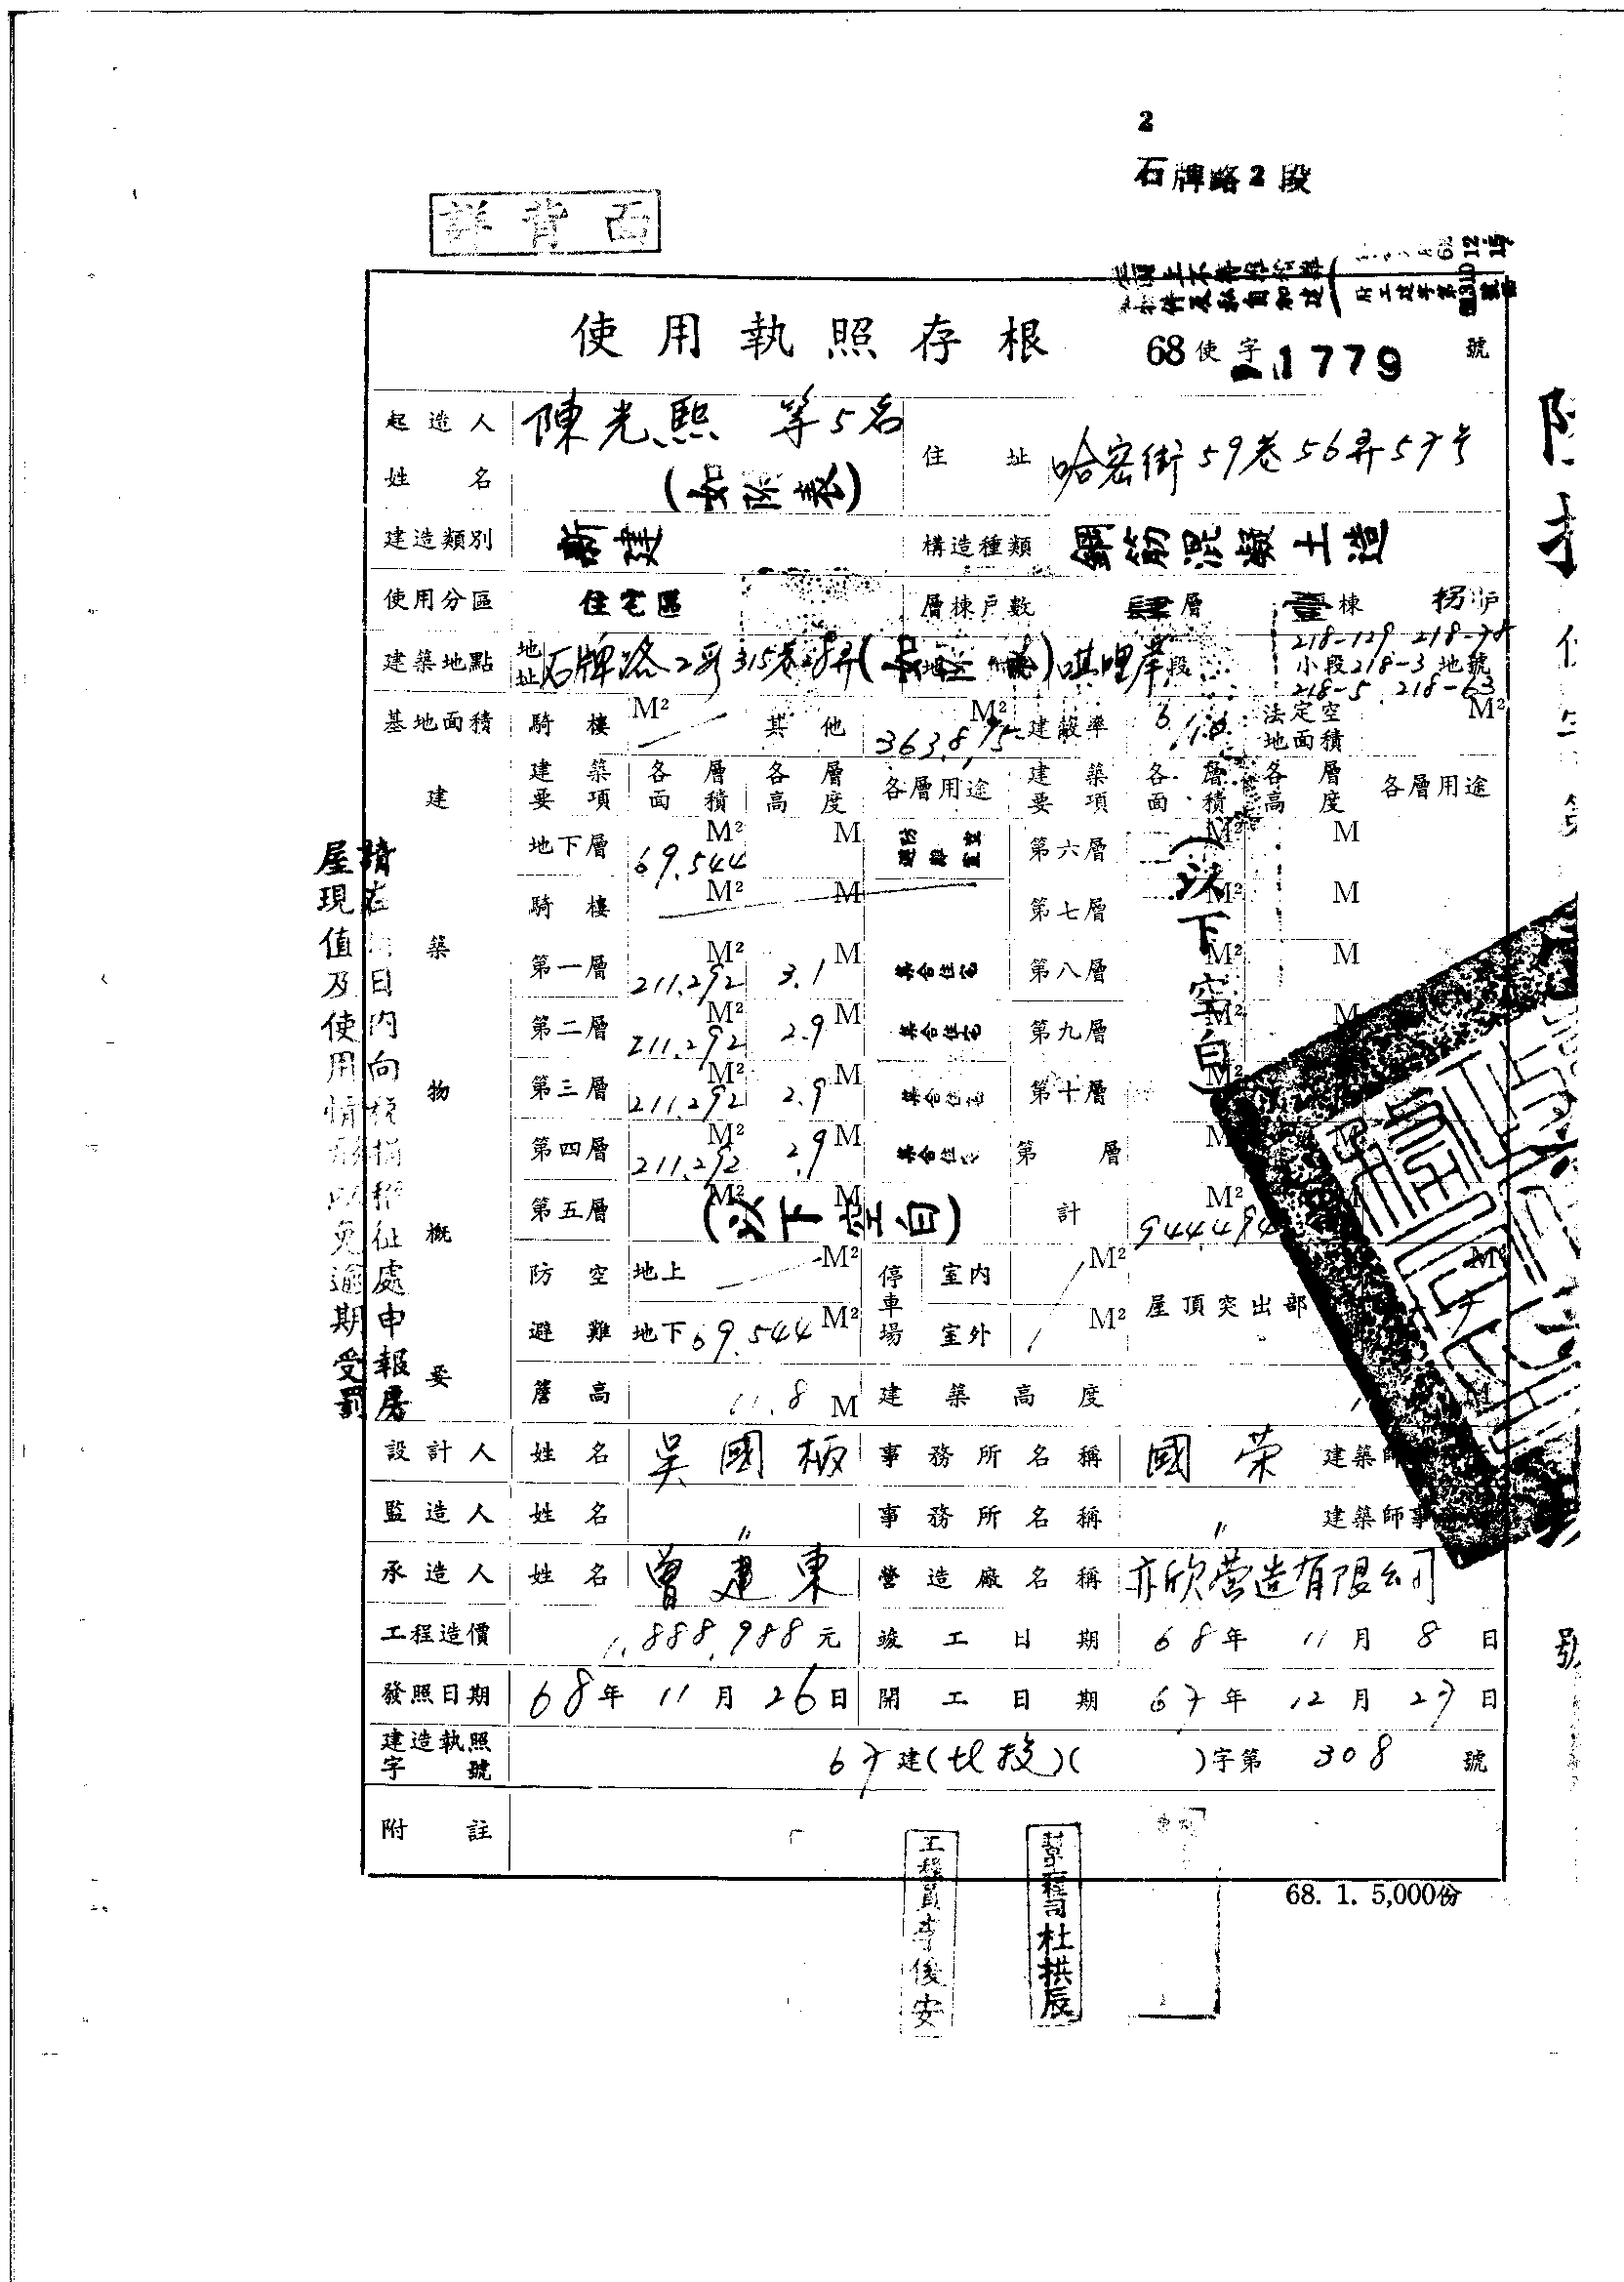 2
石牌路2段
詳背面
使用執照存根
68使字 1779 號
起造人姓名 陳光熙 等5名 (如附表)
住址 哈密街59巷56弄57号
建造類別 新建 構造種類 鋼筋混凝土造
使用分區 住宅區 層棟戶數 肆層 壹棟 拐戶
建築地點 地址 石牌路2段315巷28弄 唭哩岸段 小段 218-129 218-78 218-3 218-5 218-63 地號
基地面積 騎樓 M² 其他 363.875 M² 建蔽率 法定空地面積 M²
建築物概要
建築要項 各層面積 各層高度 各層用途 建築要項 各層面積 各層高度 各層用途
地下層 69.544 M² M 防空避難室 第六層 M² M
騎樓 M² M 第七層 M² M
第一層 211.292 M² 3.1 M 集合住宅 第八層 M² M
第二層 211.292 M² 2.9 M 集合住宅 第九層 M² M
第三層 211.292 M² 2.9 M 集合住宅 第十層 M²
第四層 211.292 M² 2.9 M 集合住 第 層 M
第五層 M² M (以下空白) 計 944.494 M²
(以下空白)
防空避難 地上 M² 停車場 室內 M² 屋頂突出部 M²
地下 69.544 M² 室外 M²
簷高 11.8 M 建築高度 M
設計人 姓名 吳國柄 事務所名稱 國荣 建築師
監造人 姓名 〃 事務所名稱 〃 建築師事
承造人 姓名 曾建東 營造廠名稱 亦欣营造有限公司
工程造價 1,888,988元 竣工日期 68年 11月 8日
發照日期 68年 11月 26日 開工日期 67年 12月 27日
建造執照字號 67建(北投)( )字第 308 號
附註
請在 日內向 稽征處申報房
屋現值及使用情形以免逾期受罰
68. 1. 5,000份
工程員李俊安
杜拱辰
號